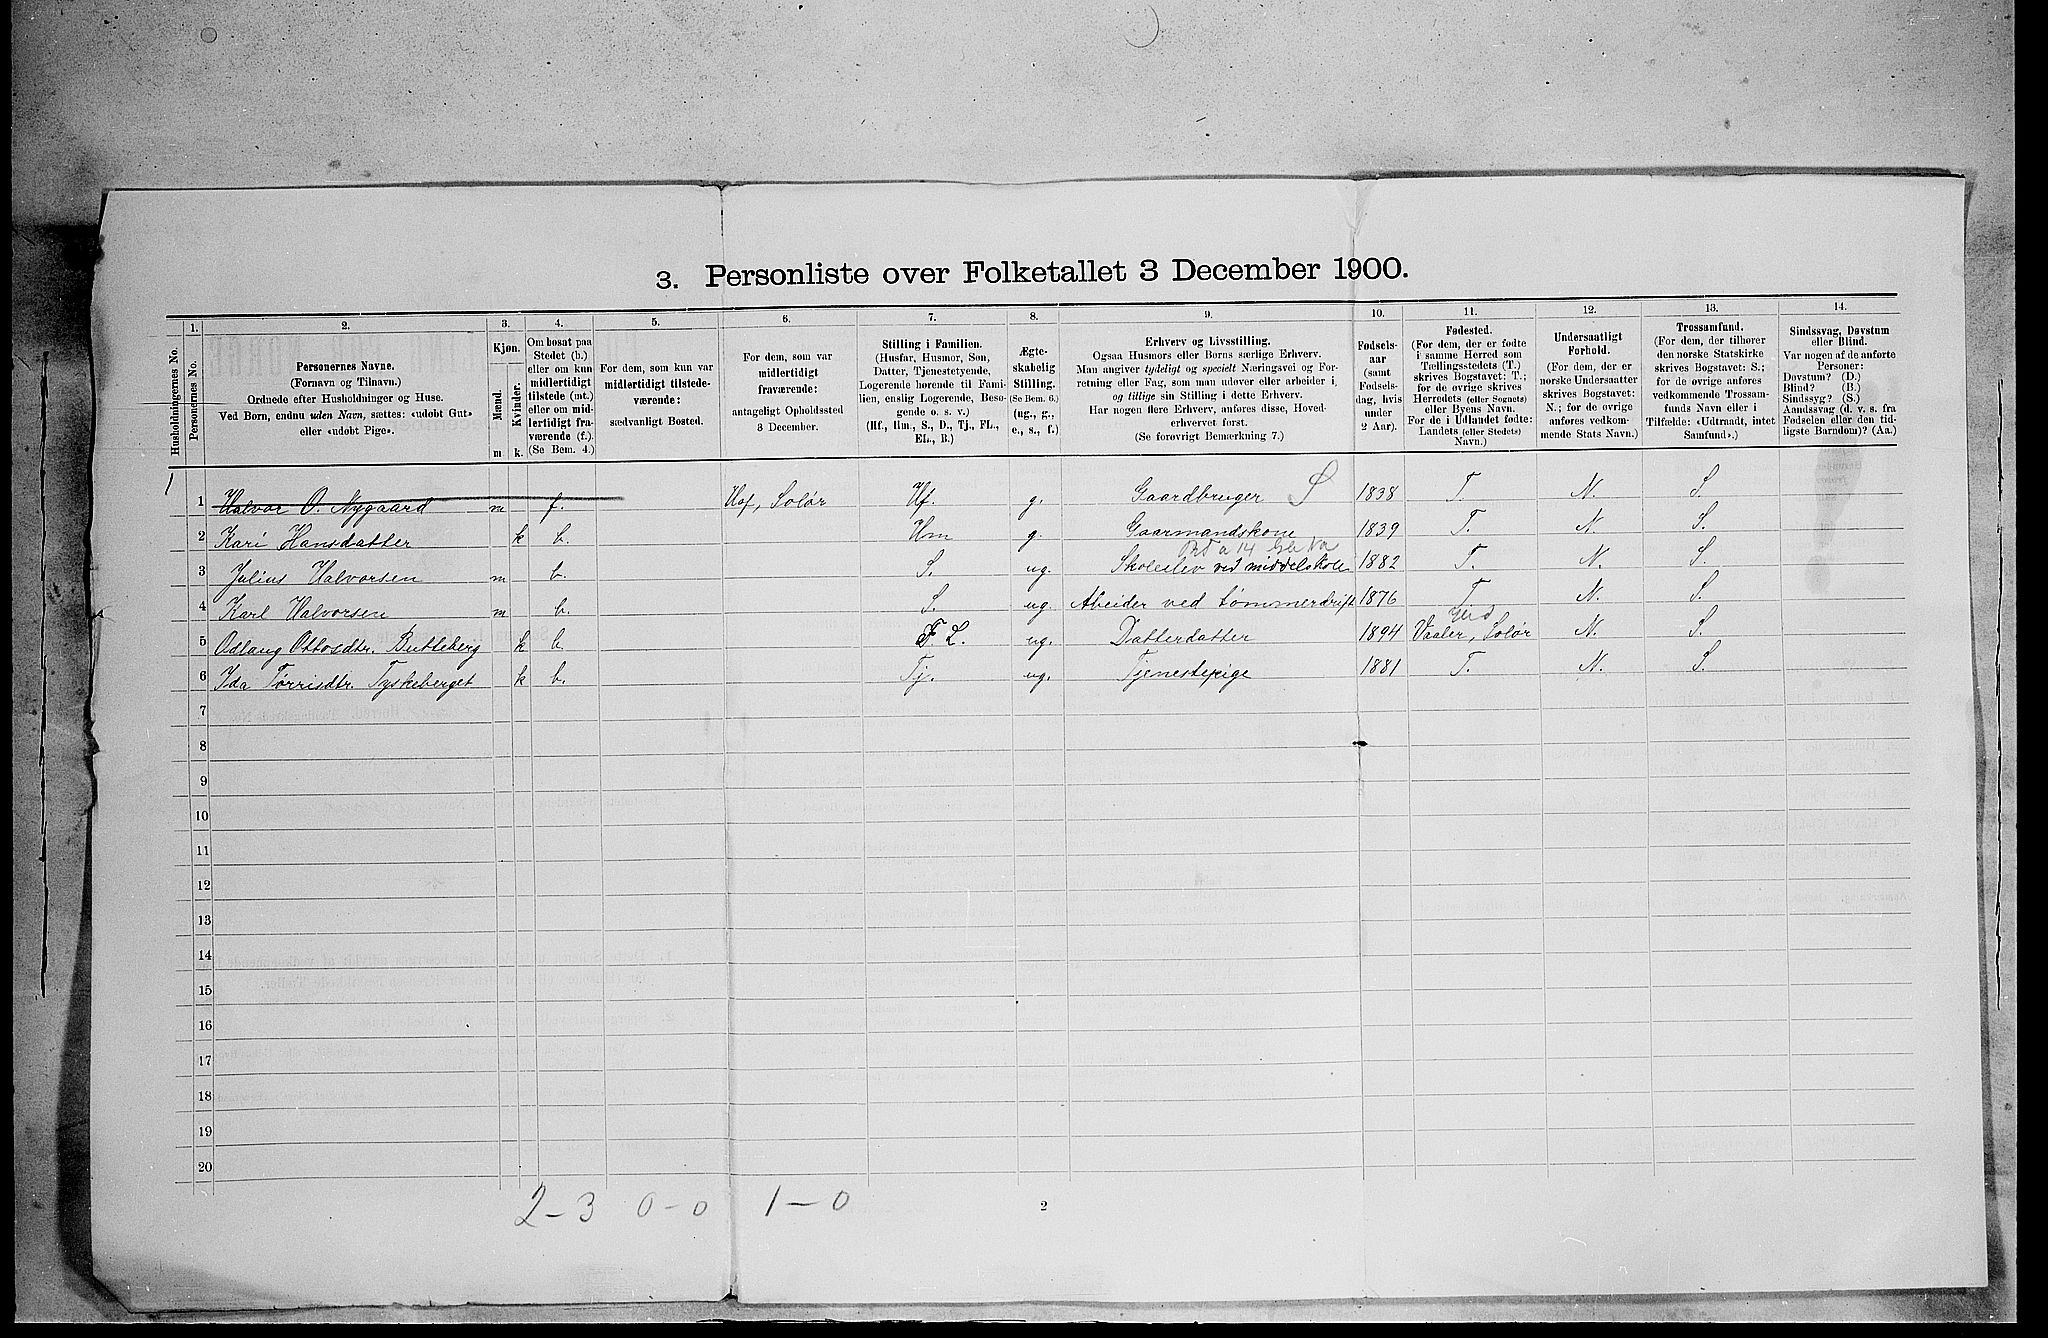 3. Personliste over Folketallet 3 December 1900.
1. 2. 3. 4. 5. 6. 7. 8. 9. 10. 11. 12. 13. 14.
Husholdningernes No.
Personernes No.
Personernes Navne.
(Fornavn og Tilnavn.)
Ordnede efter Husholdninger og Huse.
Ved Børn, endnu uden Navn, sættes: «udøbt Gut»
eller «udøbt Pige».
Kjøn.
Mænd.
Kvinder.
m k.
Om bosat paa
Stedet (b.)
eller om kun
midlertidigt
tilstede (mt.)
eller om mid-
lertidigt fra-
værende (f.).
(Se Bem. 4.)
For dem, som kun var
midlertidigt tilstede-
værende:
sædvanligt Bosted.
For dem, som var
midlertidigt
fraværende:
antageligt Opholdssted
3 December.
Stilling i Familien.
(Husfar, Husmor, Søn,
Datter, Tjenestetyende,
Logerende hørende til Fami-
lien, enslig Logerende, Besø-
gende o. s. v.)
(Hf., Hm., S., D., Tj., FL.,
EL., B.)
Ægte-
skabelig
Stilling.
(Se Bem. 6.)
(ug., g.,
e., s., f.)
Erhverv og Livsstilling.
Ogsaa Husmors eller Børns særlige Erhverv.
Man angiver tydeligt og specielt Næringsvei og For-
retning eller Fag, som man udøver eller arbeider i,
og tillige sin Stilling i dette Erhverv.
Har nogen flere Erhverv, anføres disse, Hoved-
erhvervet først.
(Se forøvrigt Bemerkning 7.)
Fødsels-
aar
(samt
Fødsels-
dag, hvis
under
2 Aar).
Fødested.
(For dem, der er fødte
i samme Herred som
Tællingsstedets (T.)
skrives Bogstavet: T.;
for de øvrige skrives
Herredets (eller Sognets)
eller Byens Navn.
For de i Udlandet fødte:
Landets (eller Stedets)
Navn.)
Undersaatligt
Forhold.
(For dem, der er
norske Undersaatter
skrives Bogstavet:
N.; for de øvrige
anføres vedkom-
mende Stats Navn.)
Trossamfund.
(For dem, der tilhører
den norske Statskirke
skrives Bogstavet: S.;
for de øvrige anføres
vedkommende Trossam-
funds Navn eller i
Tilfælde: «Udtraadt, intet
Samfund».)
Sindssvag, Døvstum
eller Blind.
Var nogen af de anførte
Personer:
Døvstum? (D.)
Blind? (B.)
Sindssyg? (S.)
Aandssvag (d. v. s. fra
Fødselen eller den tid-
ligste Barndom)? (Aa.)
1 1 Halvor O. Nygaard m f. Hof, Solør Hf. g. Gaardbruger S 1838 T. N. S.
2 Kari Hansdatter k b. Hm g. Gaarmandskone 1839 T. N. S.
3 Julius Halvorsen m b. S. ug. Skoleelev ved middelskole 1882 T. N. S.
4 Karl Halvorsen m b. S. ug. Abeider ved tømmerdrift 1876 T N. S.
5 Odlaug Ottosdtr. Butteberg k b. F. L. ug. Datterdatter 1894 Vaaler, Solør N. S.
6 Ida Tørrisdtr. Tyskeberget k b. Tj. ug. Tjenestepige 1881 T. N. S.
7
8
9
10
11
12
13
14
15
16
17
18
19
20
2-3 0-0 1-0
2